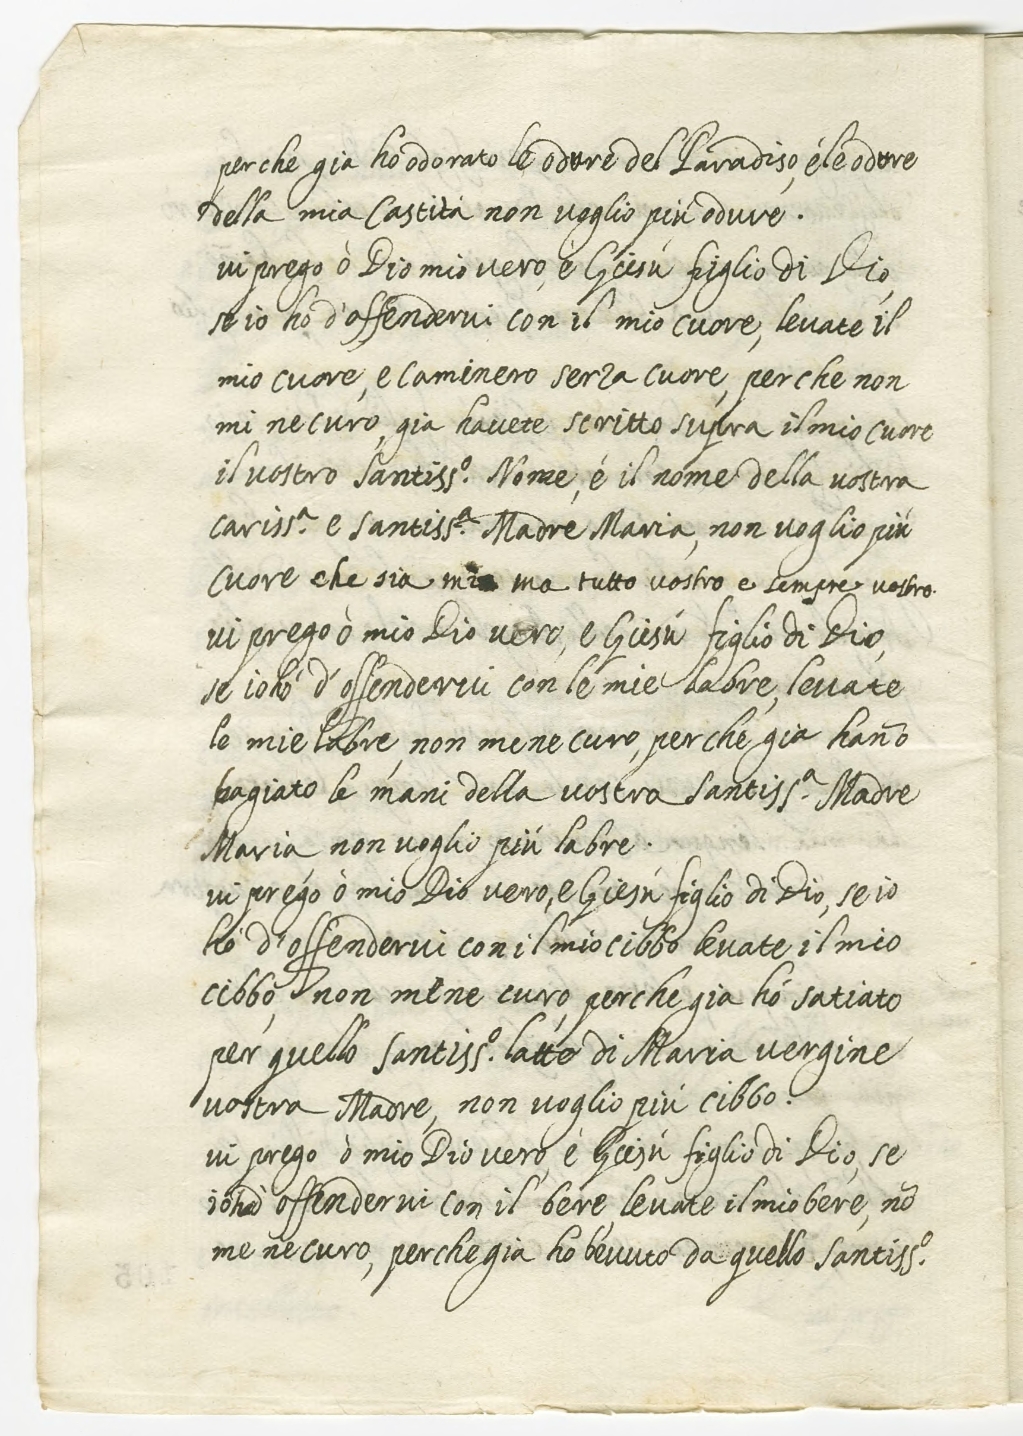 perche gia ho odorato le odore del Paradiso, é le odore
della mia Castità non voglio più odure.
vi prego ò Dio mio vero, è Giesú figlio di Dio,
se io hó d'offendervi con il mio cuore, levate il
mio cuore, e caminero senza cuore, perche non
mi ne curo, gia havete scritto supra il mio cuore
il vostro Santiss.º Nome, é il nome della vostra
cariss.ª e Santiss.ª Madre Maria, non voglio più
cuore che sia mio ma tutto vostro e sempre vostro.
vi prego ò mio Dio vero, e Giesú figlio di Dio,
se io hó d'offendervi con le mie labre, levate
le mie labre, non me ne curo, perche gia hanõ
bagiato le mani della vostra Santiss.ª Madre
Maria non voglio più labre.
vi prego ò mio Dio vero, e Giesú figlio di Dio, se io
hó d'offendervi con il mio cibbo levate il mio
cibbo, non me ne curo, perche gia hó satiato
per quello Santiss.º latte di Maria vergine
vostra Madre, non voglio più cibbo.
vi prego ò mio Dio vero, è Giesú figlio di Dio, se
io hó d'offendervi con il bere, levate il mio bere, nõ
me ne curo, perche gia ho bevuto da quello Santiss.º